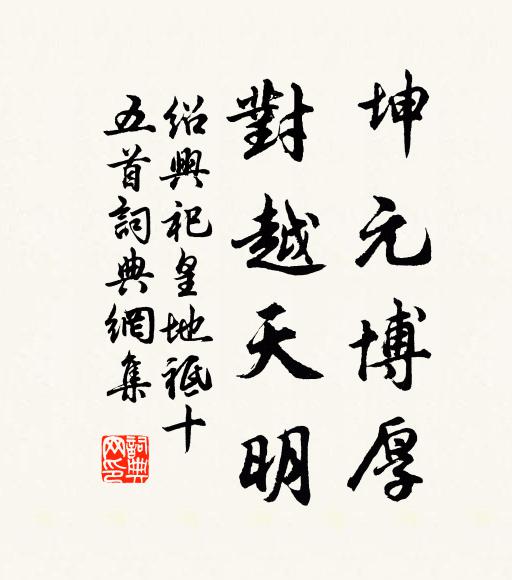 坤元博厚
對越天明
紹興祀皇地祇十
五首詞典網集
詞典網印